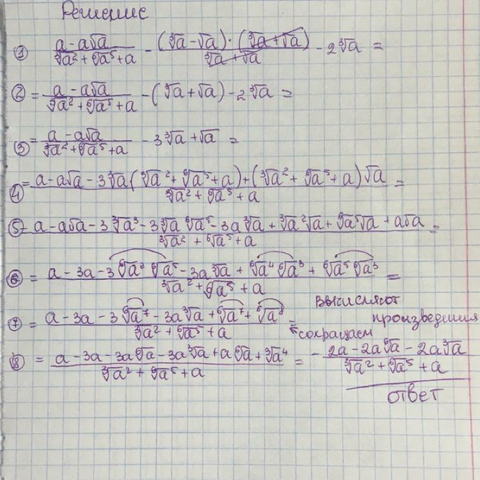 Решение
① (a - a√a)/(∛a² + ⁶√a⁵ + a) - ((∛a - √a)·(∛a + √a))/(∛a + √a) - 2∛a =
② = (a - a√a)/(∛a² + ⁶√a⁵ + a) - (∛a + √a) - 2∛a =
③ = (a - a√a)/(∛a² + ⁶√a⁵ + a) - 3∛a + √a =
④ = (a - a√a - 3∛a(∛a² + ⁶√a⁵ + a) + (∛a² + ⁶√a⁵ + a)√a)/(∛a² + ⁶√a⁵ + a) =
⑤ = (a - a√a - 3∛a³ - 3∛a ⁶√a⁵ - 3a∛a + ∛a²√a + ⁶√a⁵√a + a√a)/(∛a² + ⁶√a⁵ + a) =
⑥ = (a - 3a - 3⁶√a² ⁶√a⁵ - 3a∛a + ⁶√a⁴ ⁶√a³ + ⁶√a⁵ ⁶√a³)/(∛a² + ⁶√a⁵ + a) =
⑦ = (a - 3a - 3⁶√a⁷ - 3a∛a + ⁶√a⁷ + ⁶√a⁸)/(∛a² + ⁶√a⁵ + a) =
сокращаем
⑧ = (a - 3a - 3a⁶√a - 3a∛a + a⁶√a + ∛a⁴)/(∛a² + ⁶√a⁵ + a) = -(2a - 2a⁶√a - 2a∛a)/(∛a² + ⁶√a⁵ + a)
ответ